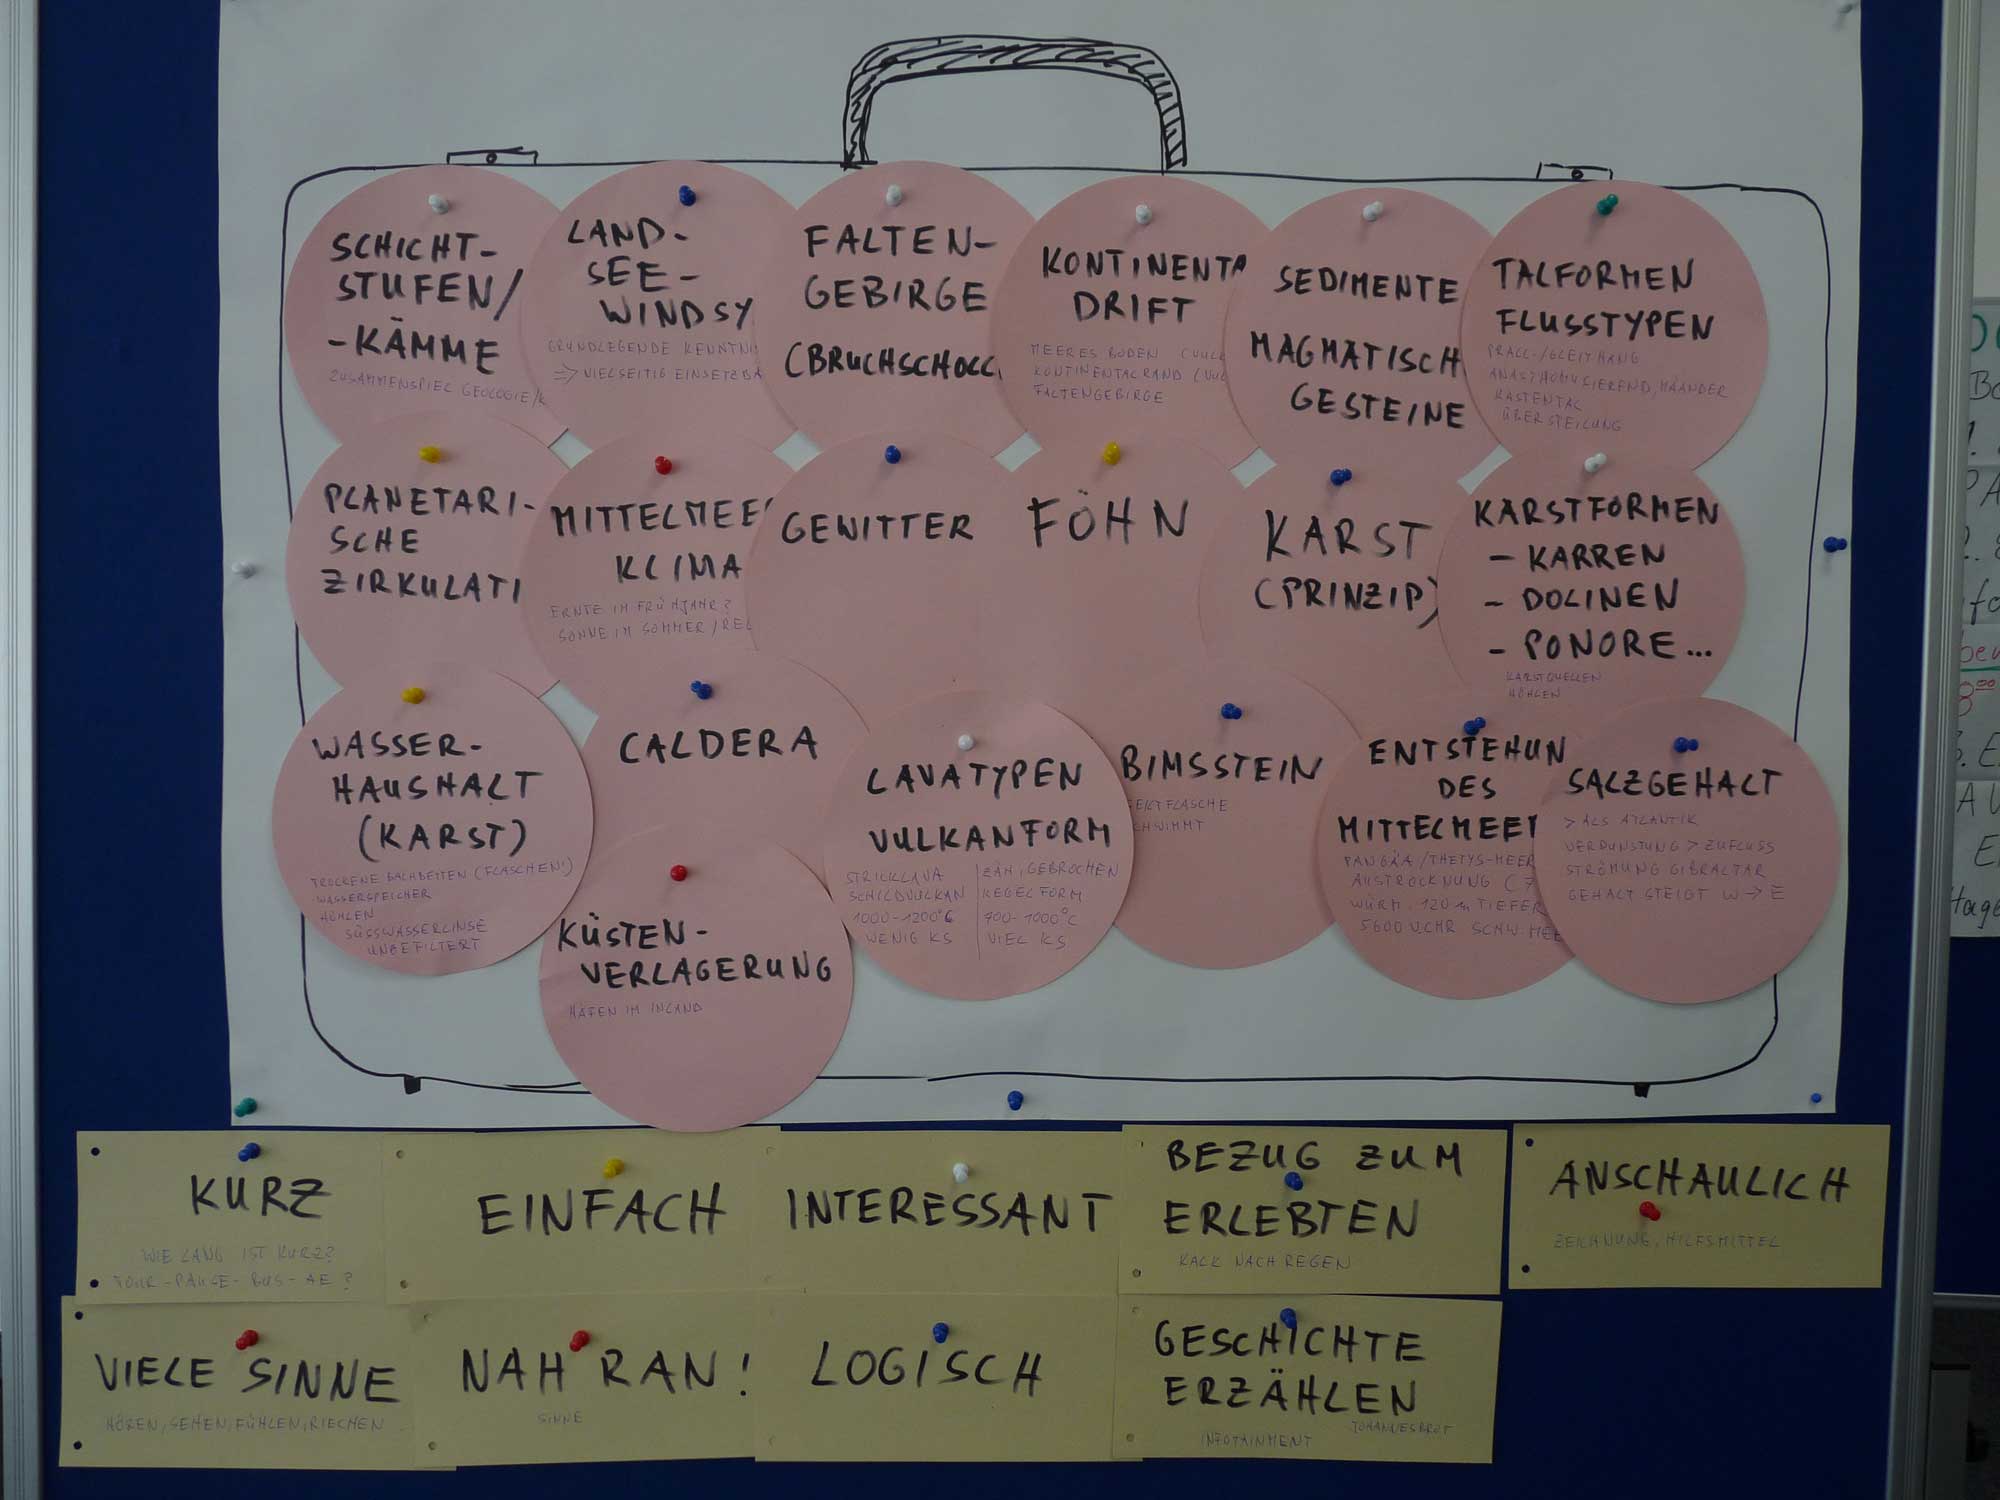 SCHICHT-
STUFEN/
-KÄMME
ZUSAMMENSPIEL GEOLOGIE/K
LAND-
SEE-
WINDSY
GRUNDLEGENDE KENNTNI
=> VIELSEITIG EINSETZBA
FALTEN-
GEBIRGE
(BRUCHSCHOLL
KONTINENTA
DRIFT
MEERESBODEN (VULK
KONTINENTALRAND (VUL
FALTENGEBIRGE
SEDIMENTE
MAGMATISCH
GESTEINE
TALFORMEN
FLUSSTYPEN
PRALL-/GLEITHANG
ANASTHOMISIEREND, MÄANDER
KASTENTAL
ÜBERSTEILUNG
PLANETARI-
SCHE
ZIRKULATI
MITTELMEER
KLIMA
ERNTE IM FRÜHJAHR?
SONNE IM SOMMER/REG
GEWITTER
FÖHN
KARST
(PRINZIP)
KARSTFORMEN
- KARREN
- DOLINEN
- PONORE...
KARSTQUELLEN
HÖHLEN
WASSER-
HAUSHALT
(KARST)
TROCKENE BACHBETTEN (FLASCHEN!)
WASSERSPEICHER
HÖHLEN
SÜSSWASSERLINSE
UNGEFILTERT
CALDERA
KÜSTEN-
VERLAGERUNG
HÄFEN IM INLAND
LAVATYPEN
VULKANFORM
STRICKLAVA
SCHILDVULKAN
1000-1200°C
WENIG KS
ZÄH, GEBROCHEN
KEGELFORM
700-1000°C
VIEL KS
BIMSSTEIN
EKTFLASCHE
CHWIMMT
ENTSTEHUN
DES
MITTELMEER
PANGÄA/THETYS-MEER
AUSTROCKNUNG (7
WÜRM: 120 m TIEFER
5600 V.CHR SCHW. MEE
SALZGEHALT
> ALS ATLANTIK
VERDUNSTUNG > ZUFLUSS
STRÖMUNG GIBRALTAR
GEHALT STEIGT W -> E
KURZ
WIE LANG IST KURZ?
TOUR-PAUSE-BUS-AE?
EINFACH
INTERESSANT
BEZUG ZUM
ERLEBTEN
KALK NACH REGEN
ANSCHAULICH
ZEICHNUNG, HILFSMITTEL
VIELE SINNE
HÖREN, SEHEN, FÜHLEN, RIECHEN
NAH RAN!
SINNE
LOGISCH
GESCHICHTE
ERZÄHLEN
JOHANNESBROT
INFOTAINMENT